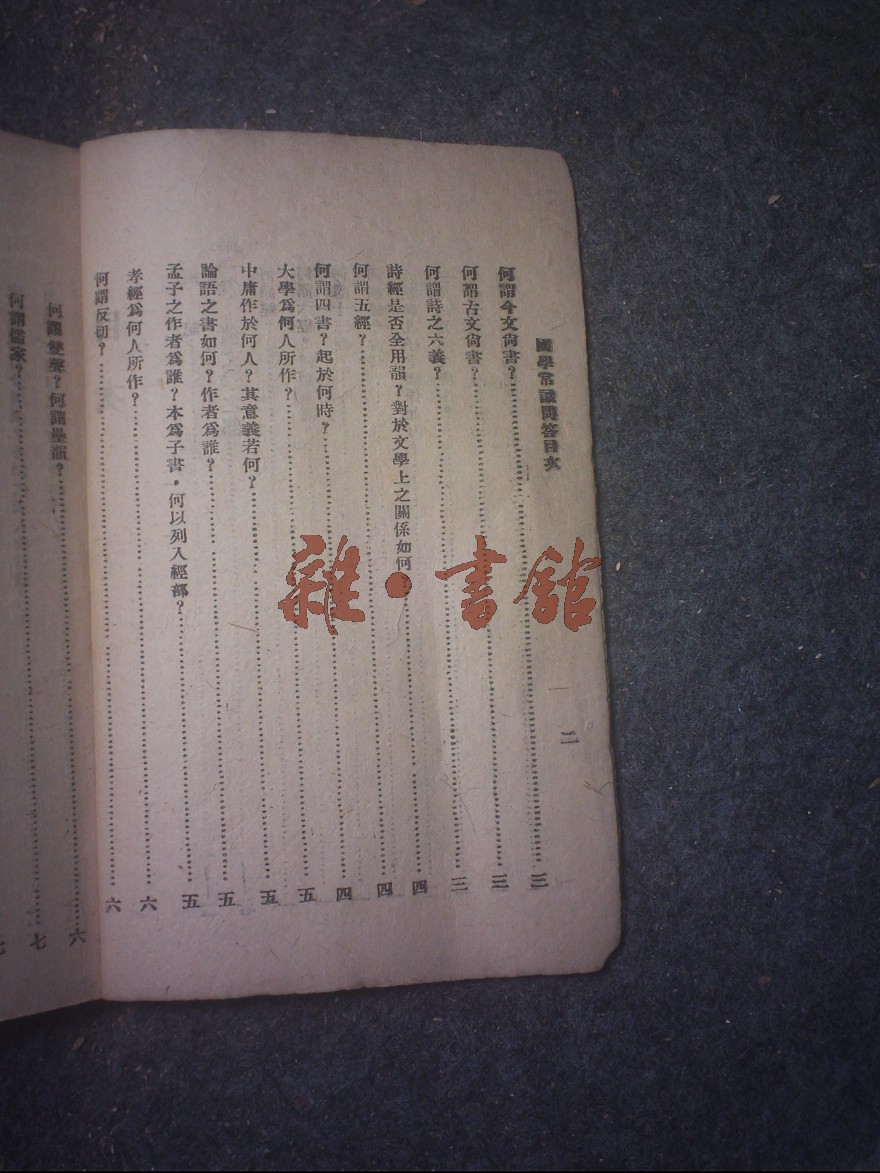 國學常識問答目次
二
何謂今文尙書？……三
何謂古文尙書？……三
何謂詩之六義？……三
詩經是否全用韻？對於文學上之關係如何……四
何謂五經？……四
何謂四書？起於何時？……四
大學爲何人所作？……五
中庸作於何人？其意義若何？……五
論語之書如何？作者爲誰？……五
孟子之作者爲誰？本爲子書，何以列入經部？……五
孝經爲何人所作？……六
何謂反切？……六
何謂雙聲？何謂疊韻？……六
何謂儒家？……七
七
雜·書館